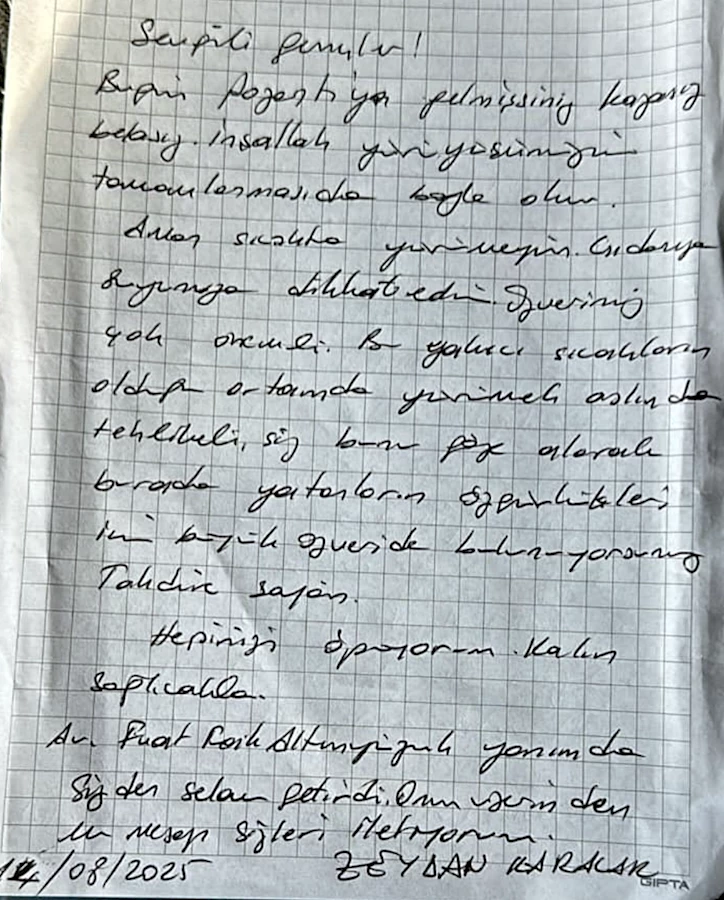 Sevgili gençler!
Bugün Pozantı'ya gelmişsiniz kazasız
belasız. İnşallah yürüyüşünüzün
tamamlanmasıda böyle olur.
Aman sıcakta yürümeyin. Gıdanıza
suyunuza dikkat edin. Özveriniz
çok önemli. Bu yakıcı sıcakların
olduğu ortamda yürümek aslında
tehlikeli, siz bunu göze alarak
burada yatanların özgürlükleri
için büyük özveride bulunuyorsunuz
Takdire şayan.
Hepinizi öpüyorum. Kalın
sağlıcakla.
Av. Fuat Altunyığınlı yanımda
Sizden selam getirdi. Onun üzerinden
bu mesajı sizlere iletiyorum.
14/08/2025 ZEYDAN KARALAR
GIPTA